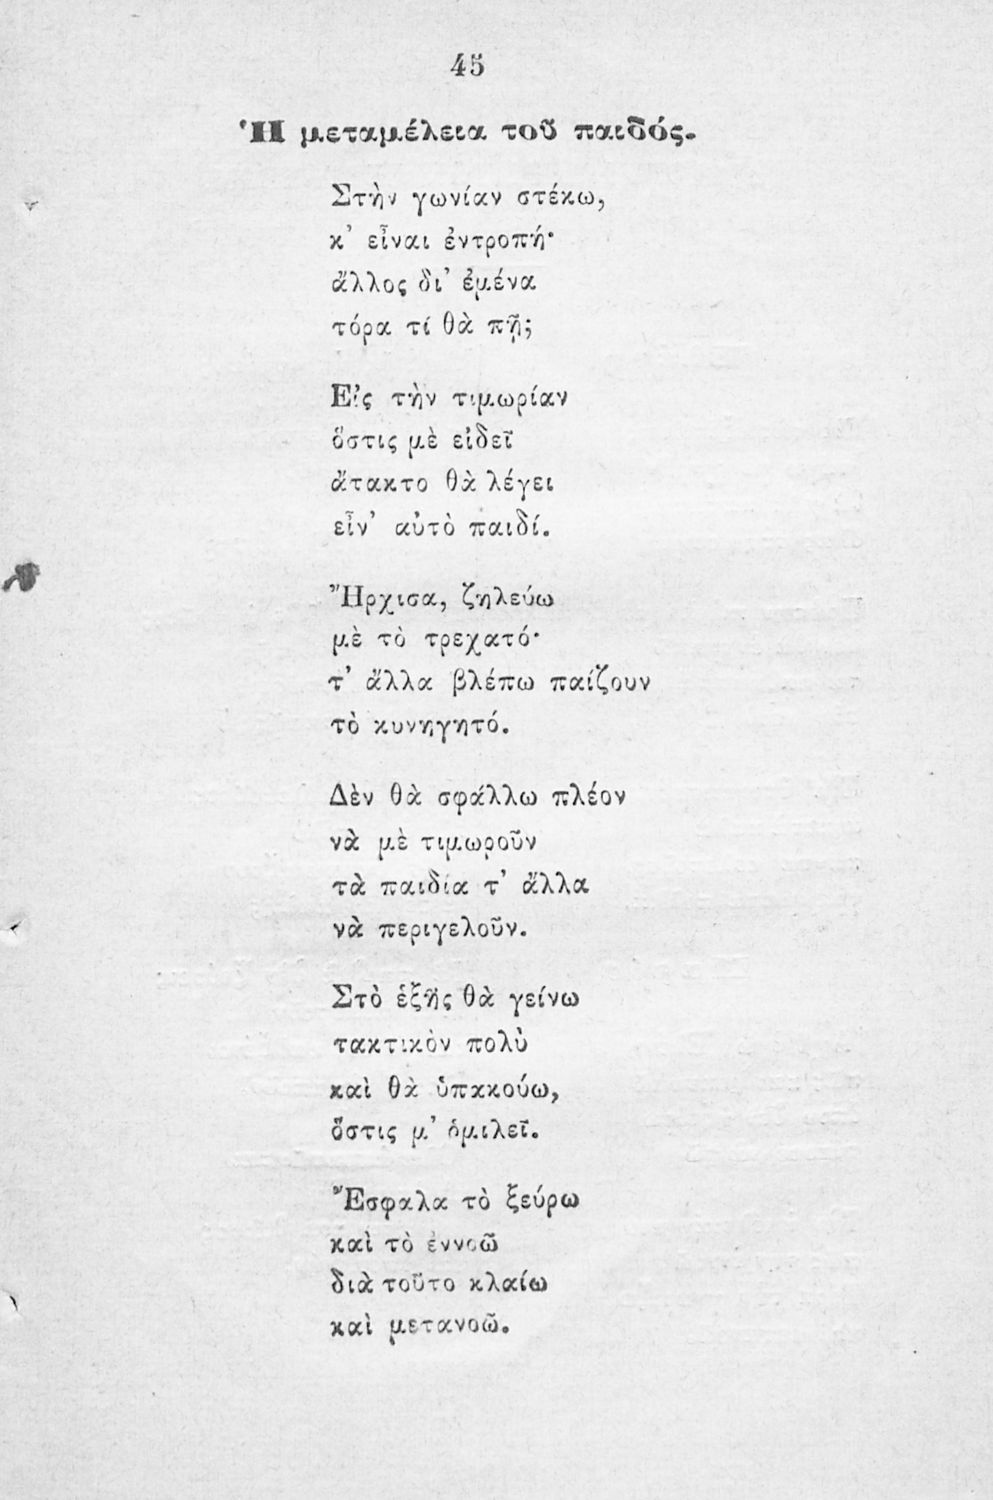 45
Ἡ μεταμέλεια τοῦ παιδός.
Στὴν γωνίαν στέκω,
κ' εἶναι ἐντροπή·
ἄλλος δι' ἐμένα
τόρα τί θὰ πῇ;
Εἰς τὴν τιμωρίαν
ὅστις μὲ εἰδεῖ
ἄτακτο θὰ λέγει
εἶν' αὐτὸ παιδί.
Ἤρχισα, ζηλεύω
μὲ τὸ τρεχατό·
τ' ἄλλα βλέπω παίζουν
τὸ κυνηγητό.
Δὲν θὰ σφάλλω πλέον
νὰ μὲ τιμωροῦν
τὰ παιδία τ' ἄλλα
νὰ περιγελοῦν.
Στὸ ἑξῆς θὰ γείνω
τακτικὸν πολὺ
καὶ θὰ ὑπακούω,
ὅστις μ' ὁμιλεῖ.
Ἔσφαλα τὸ ξεύρω
καὶ τὸ ἐννοῶ
διὰ τοῦτο κλαίω
καὶ μετανοῶ.